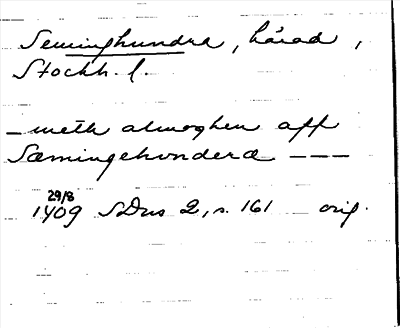 Seminghundra, härad,
Stockh. l.
– meth almoghen aff
Sæmingehundera – – –
29/8
1409 SDns 2, s. 161 orig.